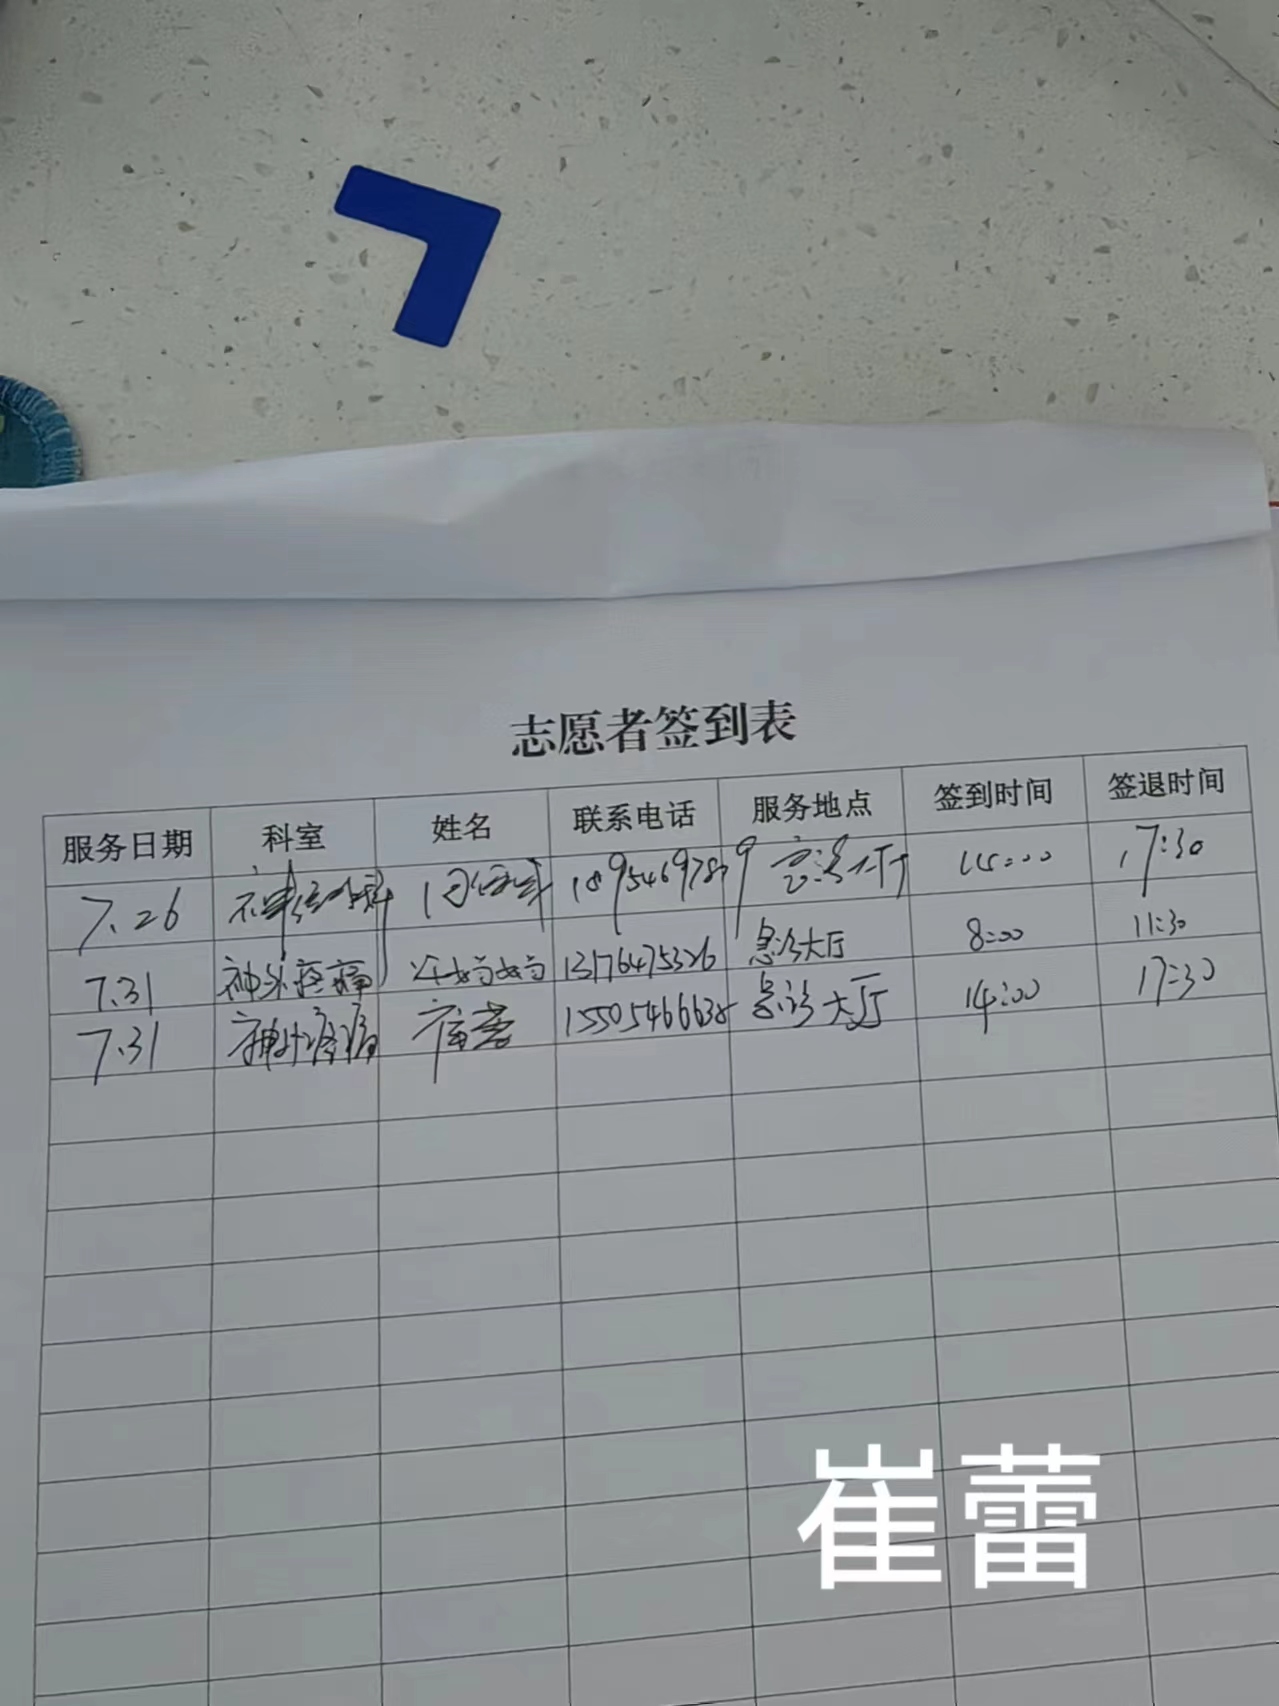 志愿者签到表
服务日期 科室 姓名 联系电话 服务地点 签到时间 签退时间
7.26 18954697879 17:30
7.31 神外疼痛 13176475326 急诊大厅 8:00 11:30
7.31 神外疼痛 15505466638 急诊大厅 14:00 17:30
崔蕾